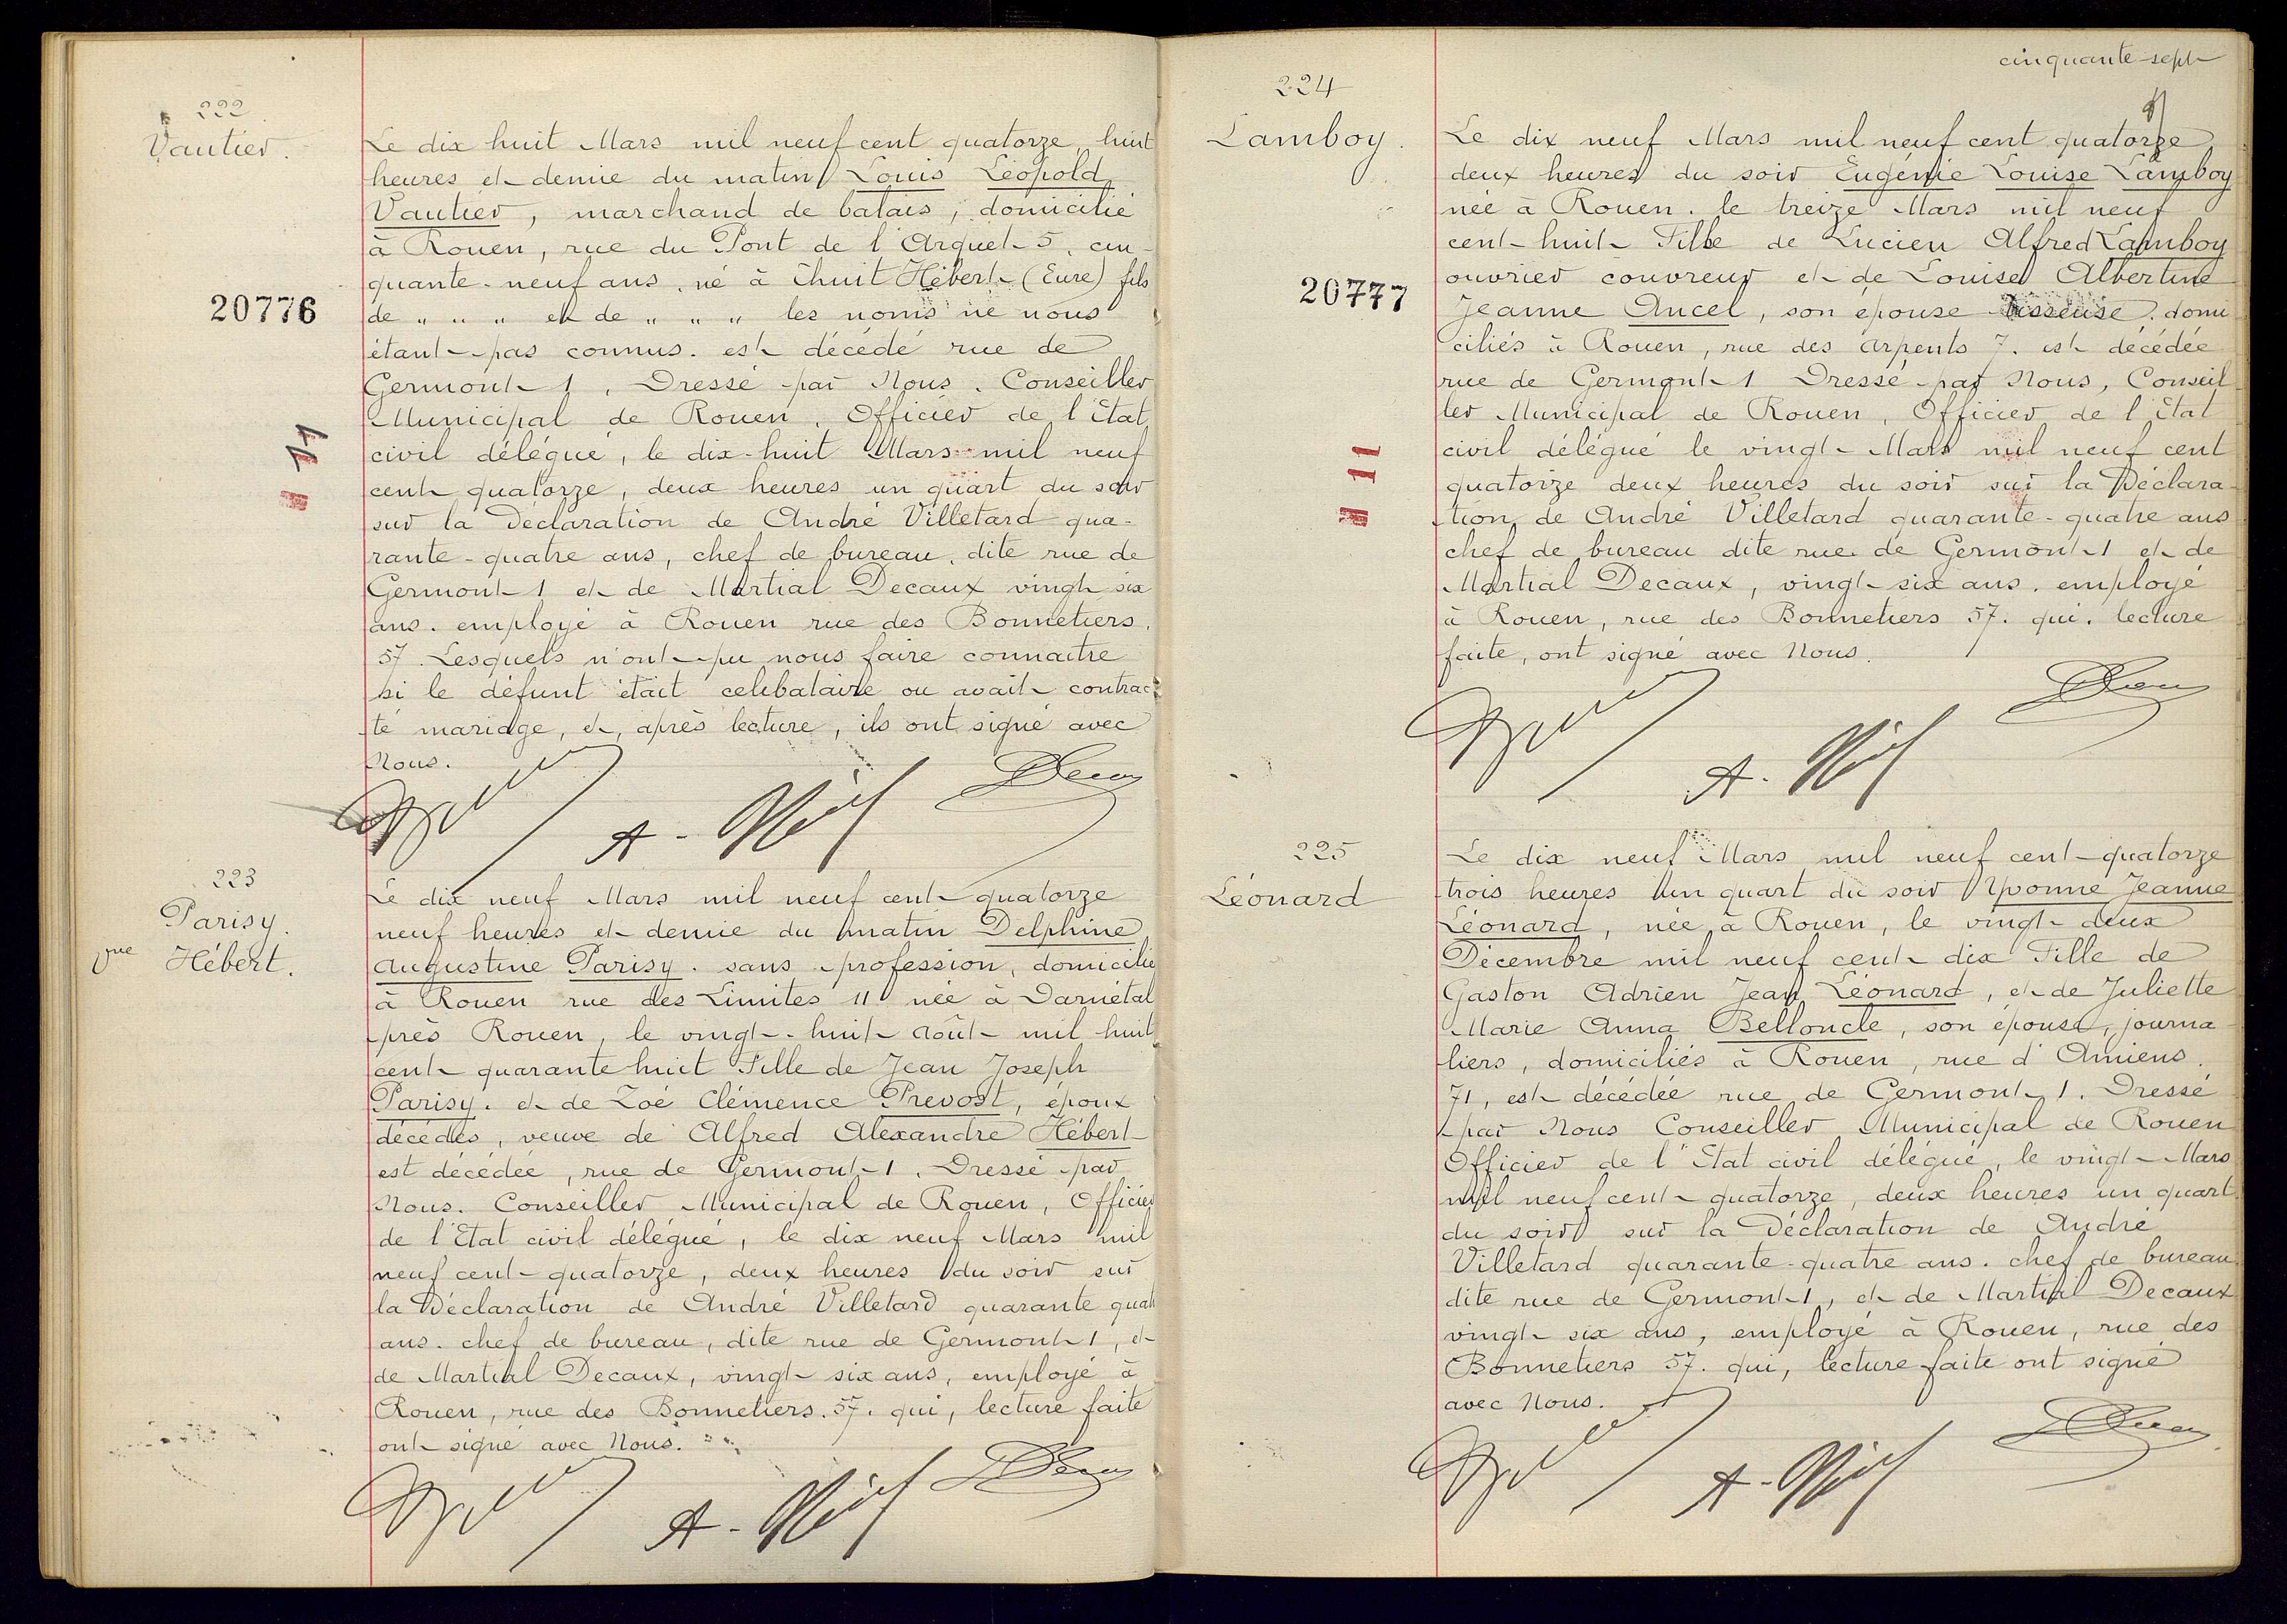 222
Vautier.
20776
11
Le dix huit Mars mil neuf cent quatorze, huit
heures et demie du matin Louis Léopold
Vautier, marchand de balais, domicilié
à Rouen, rue du Pont de l'Arquet 5, cin-
quante-neuf ans, né à Thuit Hébert (Eure) fils
de " " " et de " " " les noms ne nous
étant pas connus. est décédé rue de
Germont 1, Dressé par Nous, Conseiller
Municipal de Rouen, Officier de l'Etat
civil délégué, le dix-huit Mars mil neuf
cent quatorze, deux heures un quart du soir
sur la Déclaration de André Villetard qua-
rante-quatre ans, chef de bureau, dite rue de
Germont 1 et de Martial Decaux vingt six
ans. employé à Rouen rue des Bonnetiers,
57. Lesquels n'ont pu nous faire connaitre
si le défunt était célibataire ou avait contrac-
té mariage, et, après lecture, ils ont signé avec
Nous.
223
Parisy.
Vve Hébert.
Le dix neuf Mars mil neuf cent quatorze
neuf heures et demie du matin Delphine
Augustine Parisy. sans profession, domicilié
à Rouen rue des Limites 11 née à Darnétal
près Rouen, le vingt-huit Août mil huit
cent quarante huit Fille de Jean Joseph
Parisy. et de Zoé Clémence Prevost, époux
décédés, veuve de Alfred Alexandre Hébert
est décédée, rue de Germont 1. Dressé par
Nous. Conseiller Municipal de Rouen, Officier
de l'Etat civil délégué, le dix neuf Mars mil
neuf cent quatorze, deux heures du soir sur
la Déclaration de André Villetard quarante quat
ans. chef de bureau, dite rue de Germont 1, et
de Martial Decaux, vingt six ans, employé à
Rouen, rue des Bonnetiers. 57. qui, lecture faite
ont signé avec Nous.
cinquante-sept
224
Lamboy.
20777
11
Le dix neuf Mars mil neuf cent quatorze
deux heures du soir Eugénie Louise Lamboy
née à Rouen. le treize Mars mil neuf
cent huit Fille de Lucien Alfred Lamboy
ouvrier couvreur et de Louise Albertine
Jeanne Ancel, son épouse tisseuse. domi
ciliés à Rouen, rue des Arpents 7. est décédée
rue de Germont 1 Dressé par Nous, Conseil
ler Municipal de Rouen, Officier de l'Etat
civil délégué le vingt Mars mil neuf cent
quatorze deux heures du soir sur la Déclara-
tion de André Villetard quarante-quatre ans
chef de bureau dite rue de Germont 1 et de
Martial Decaux, vingt six ans. employé
à Rouen, rue des Bonnetiers 57. qui. lecture
faite, ont signé avec Nous.
225
Léonard
Le dix neuf Mars mil neuf cent quatorze
trois heures un quart du soir Yvonne Jeanne
Léonard, née à Rouen, le vingt deux
Décembre mil neuf cent dix Fille de
Gaston Adrien Jean Léonard, et de Juliette
Marie Anna Belloncle, son épouse, journa
liers, domiciliés à Rouen, rue d'Amiens.
71, est décédée rue de Germont 1. Dressé
par Nous Conseiller Municipal de Rouen
Officier de l'Etat civil délégué, le vingt Mars
mil neuf cent quatorze, deux heures un quart
du soir sur la Déclaration de André
Villetard quarante-quatre ans. chef de bureau
dite rue de Germont 1, et de Martial Decaux
vingt six ans, employé à Rouen, rue des
Bonnetiers 57. qui, lecture faite ont signé
avec Nous.